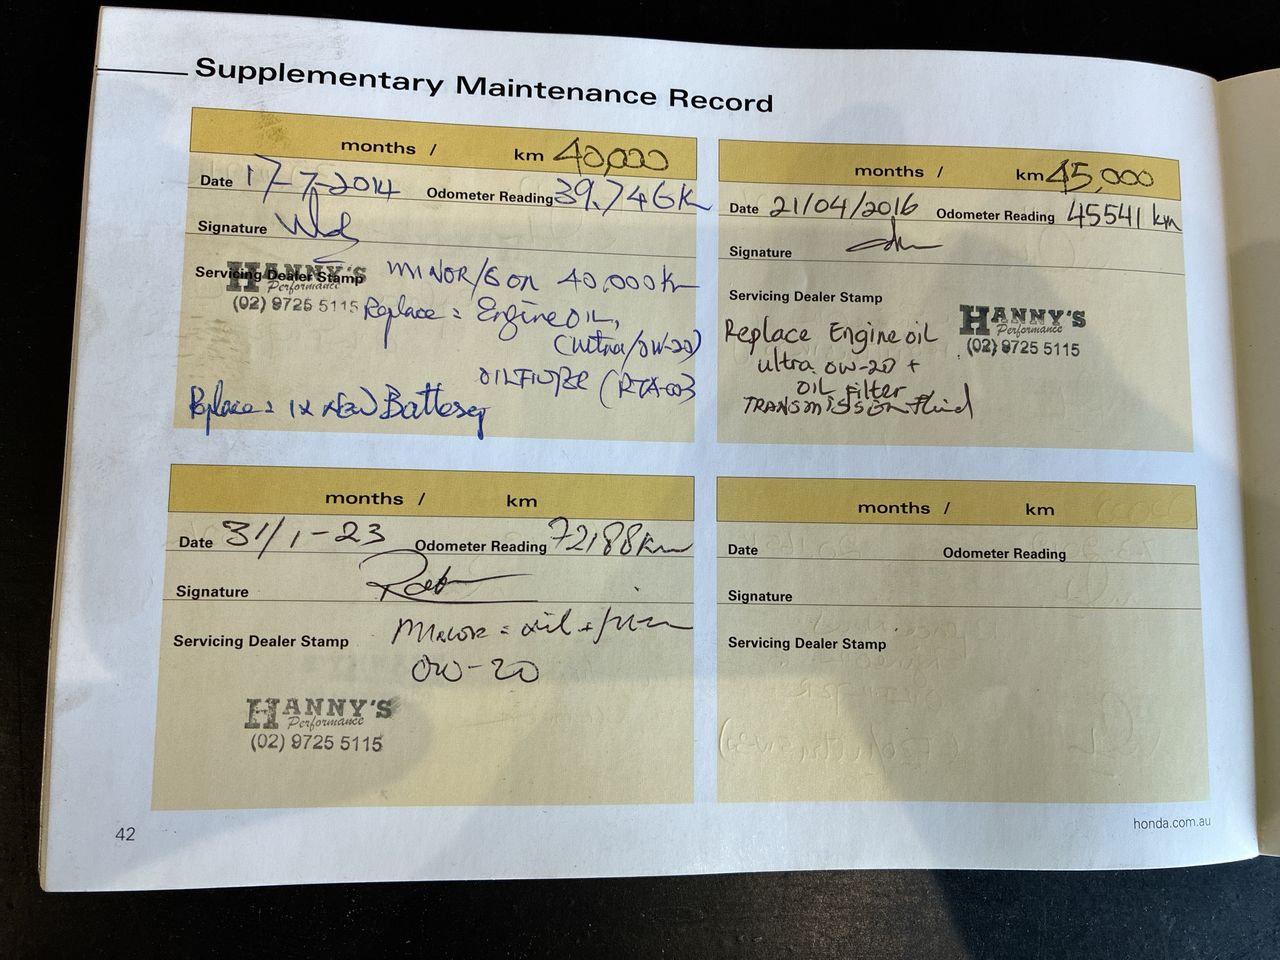 Supplementary Maintenance Record
months / km 40,000
Date 17-7-2014 Odometer Reading 39.746Km
Signature
Servicing Dealer Stamp
HANNY'S
Performance
(02) 9725 5115
MINOR/S ON 40,000km
Replace = Engine OIL,
(ultra/0W-20)
OILFILTER (RTA-003
Replace = 1x NEW Battesey
months / km 45,000
Date 21/04/2016 Odometer Reading 45541 km
Signature
Servicing Dealer Stamp
HANNY'S
Performance
(02) 9725 5115
Replace Engine oil
ultra 0W-20 +
OIL Filter
TRANSMISSION Fluid
months / km
Date 31/1-23 Odometer Reading 72188km
Signature
Servicing Dealer Stamp
MINOR = oil +
0W-20
HANNY'S
Performance
(02) 9725 5115
months / km
Date Odometer Reading
Signature
Servicing Dealer Stamp
42
honda.com.au